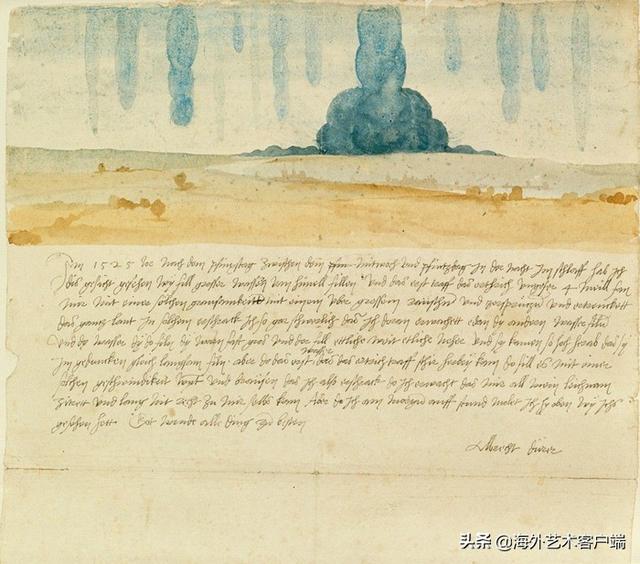 Im 1525 Jor nach dem pfinxstag zwischen dem Mitwoch und pfintzdag in der nacht im schlaff hab ich
dis gesicht gesehen wy fill grosser wassern vom himell fillen Und das erst traff das erthrich ungefer 4 meill fan
mir mit einer solchen grausamkeitt mit einem uber grossem raüschn und zersprützen und ertrenckett
das gantz lant In solchem erschrack ich so gar schwerlich das ich doran erwachett e dan dy andern wasser filn
Und dy wasser dy do filn dy warn fast gros und der fill ettliche weit ettliche neher und sy kamen so hoch herab das sy
im gedancken gleich langsam filn aber do das erst wasser das das ertrich traff schir herbey kam do fill es mit einer
solchen geschwindikeit wynt und braüsen das ich also erschrack do ich erwacht das mir all mein leichnam
zitrett und lang nit recht zu mir selbs kam Aber do ich am morgn auff stund molet ich hy oben wy ichs
gesehen hett Got wende alle ding zu besten
Albrecht dürer
头条 @海外艺术客户端